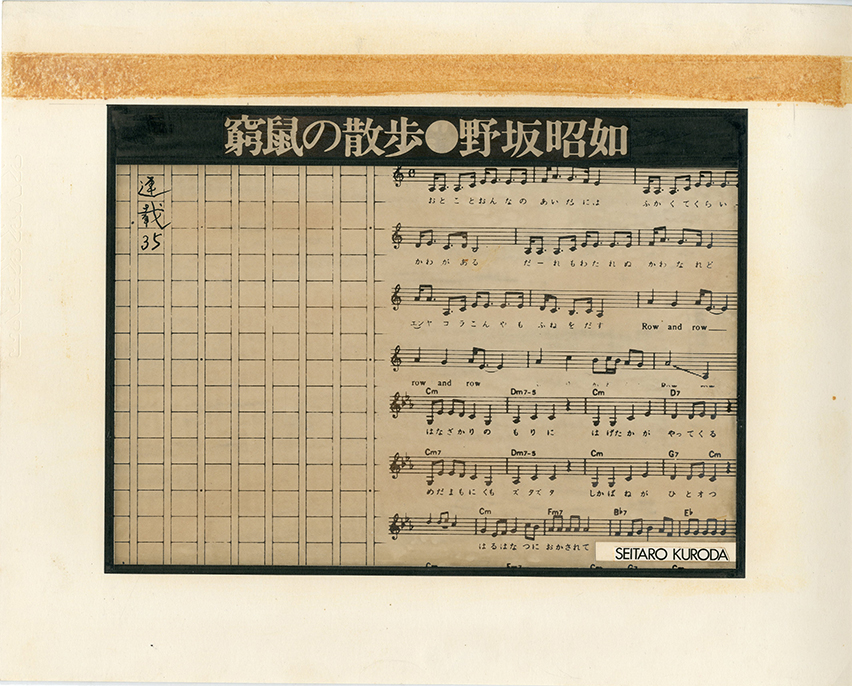 窮鼠の散歩●野坂昭如
連載
35
おとことおんなの あいだには ふかくてくらい
かわが ある だーれもわたれぬ かわなれど
エンヤ コラこんやも ふねをだす Row and row
row and row
Cm Dm7-5 Cm D7
はなざかりの もりに はげたかが やってくる
Cm7 Dm7-5 Cm G7 Cm
めだまもにくも ズタズタ しかばねが ひとオつ
Cm Fm7 B♭7 E♭
はるはなつに おかされて
SEITARO KURODA